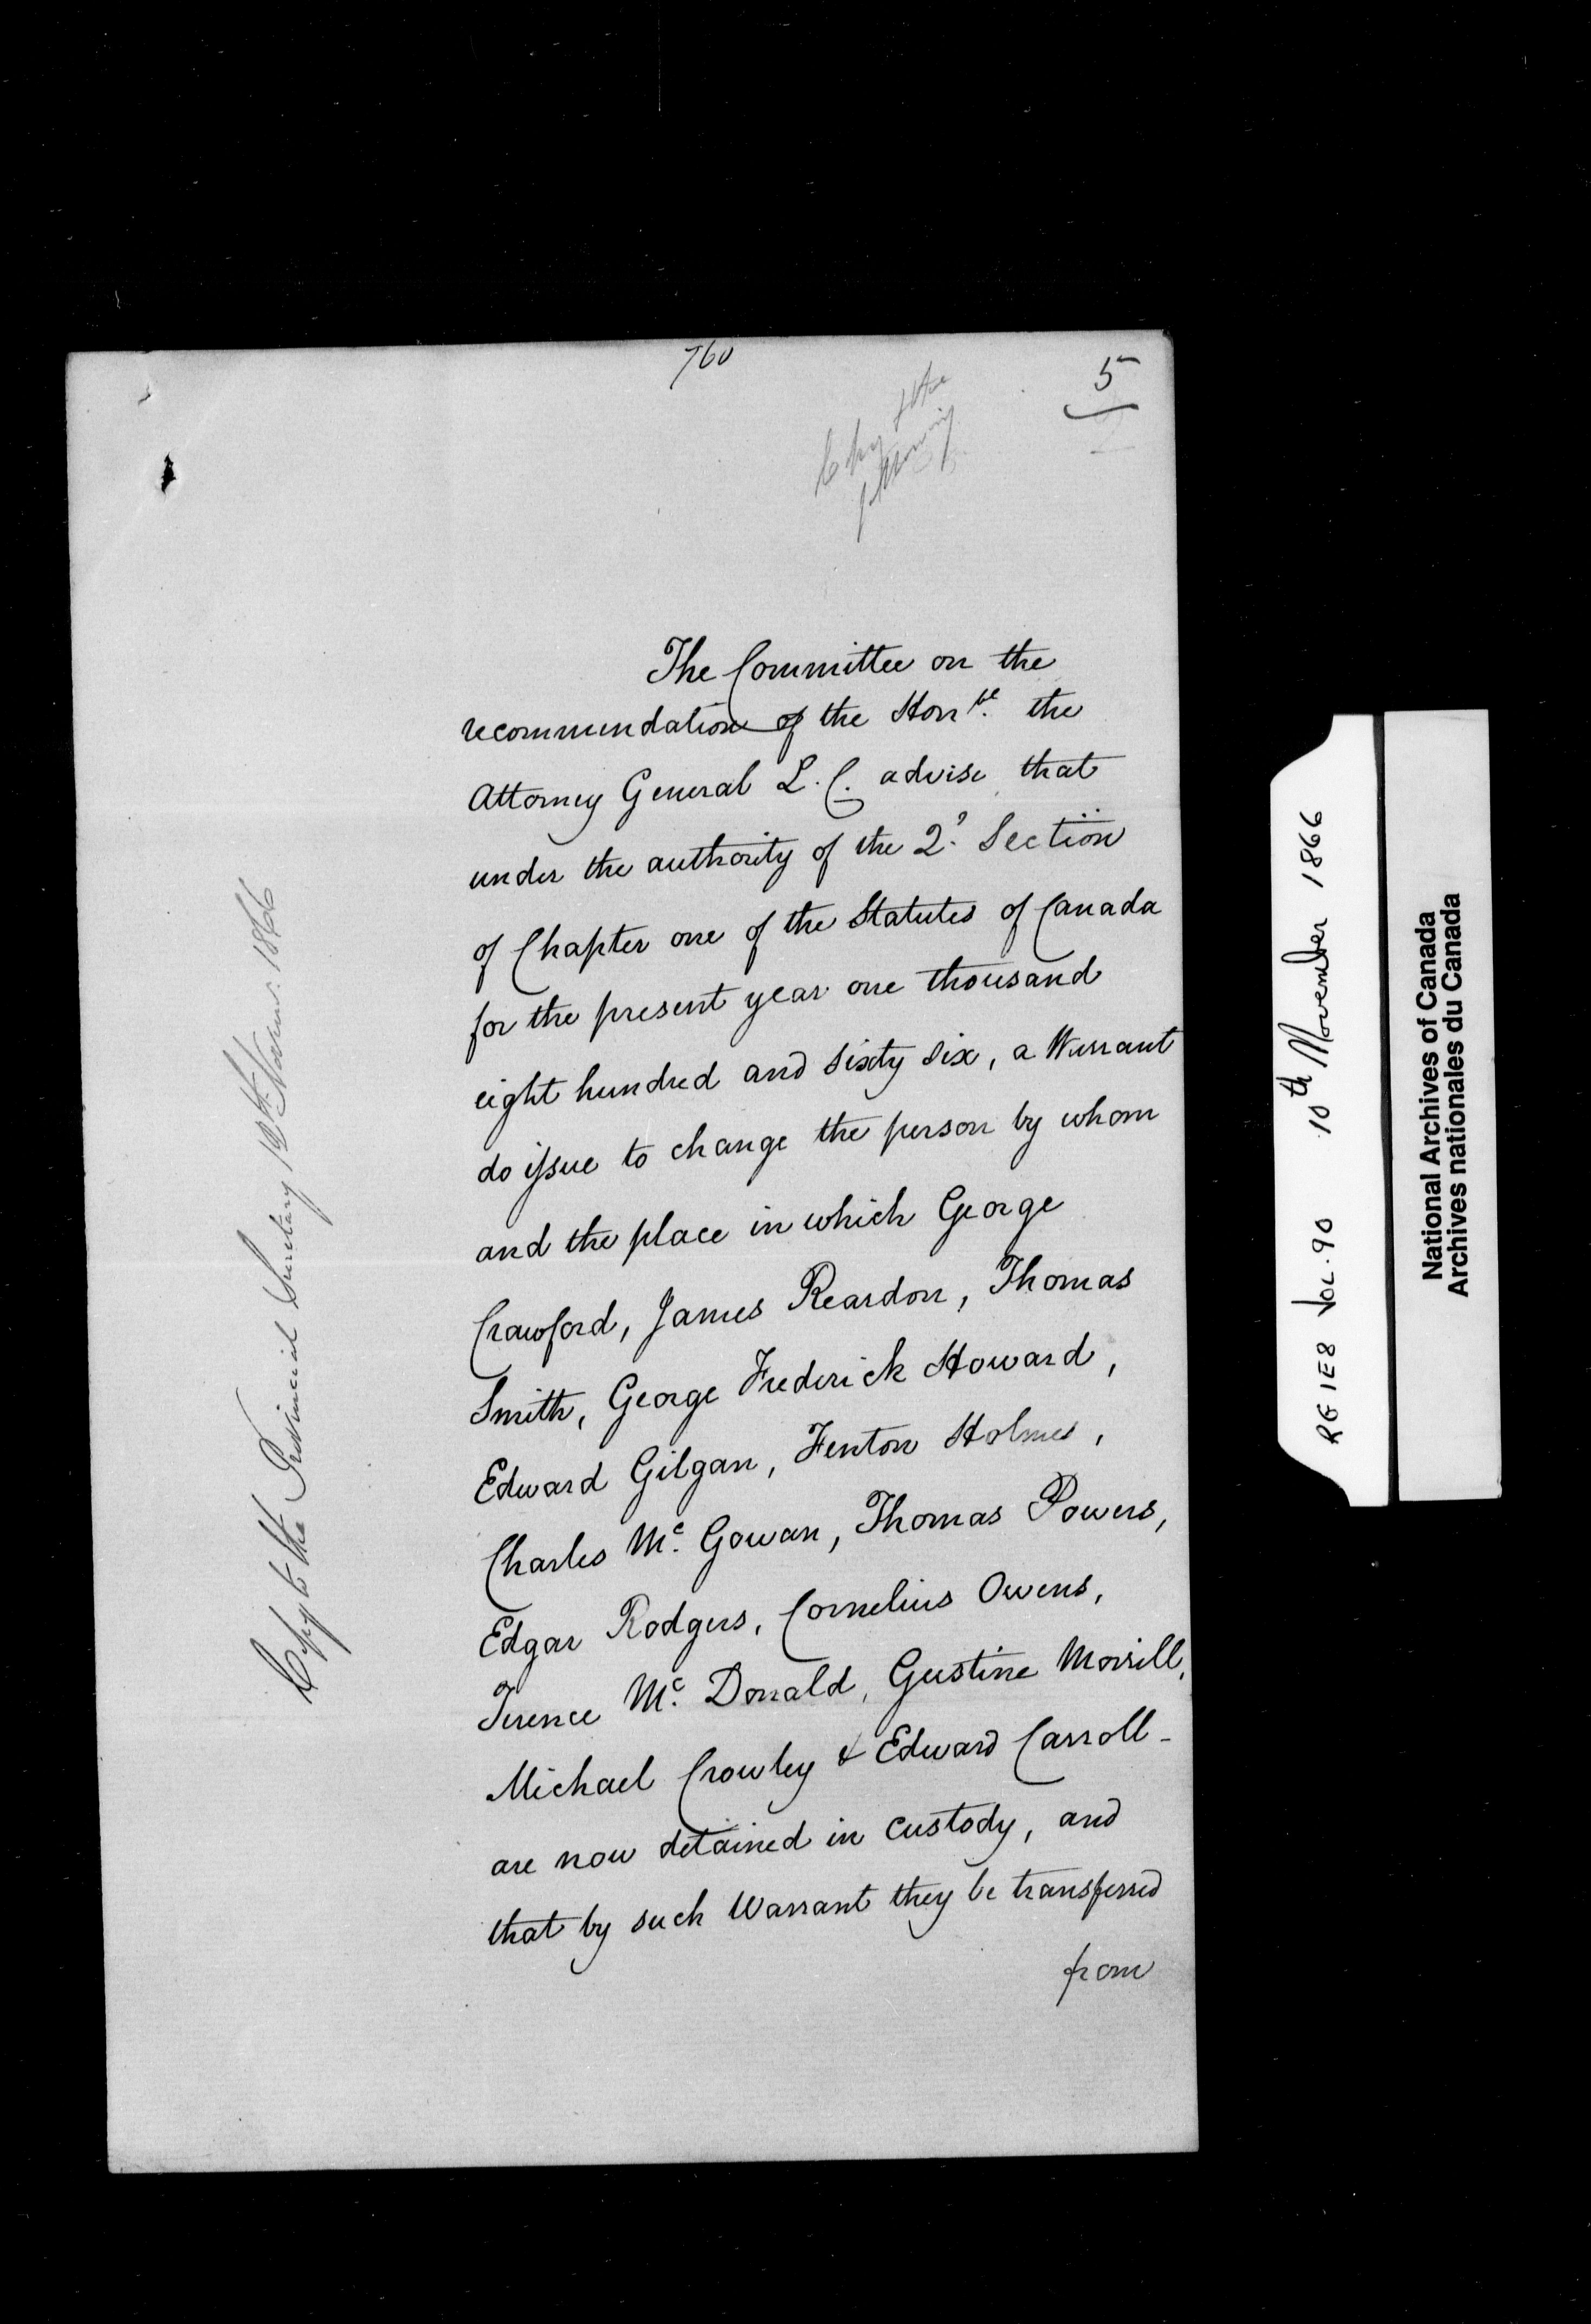 760
5
Copy
The Committee on the
recommendation of the Honble. the
Attorney General L. C. advise that
under the authority of the 2d. Section
of Chapter one of the Statutes of Canada
for the present year one thousand
eight hundred and sixty six, a Warrant
do issue to change the person by whom
and the place in which George
Crawford, James Reardon, Thomas
Smith, George Frederick Howard,
Edward Gilgan, Fenton Holmes,
Charles Mc. Gowan, Thomas Powers,
Edgar Rodgers, Cornelius Owens,
Terence Mc. Donald, Gustine Morrill,
Michael Crowley & Edward Carroll -
are now detained in custody, and
that by such Warrant they be transferred
from
Copy to the Provincial Secretary Novr. 1866
RG 1E8 VOL. 90 10th November 1866
National Archives of Canada
Archives nationales du Canada